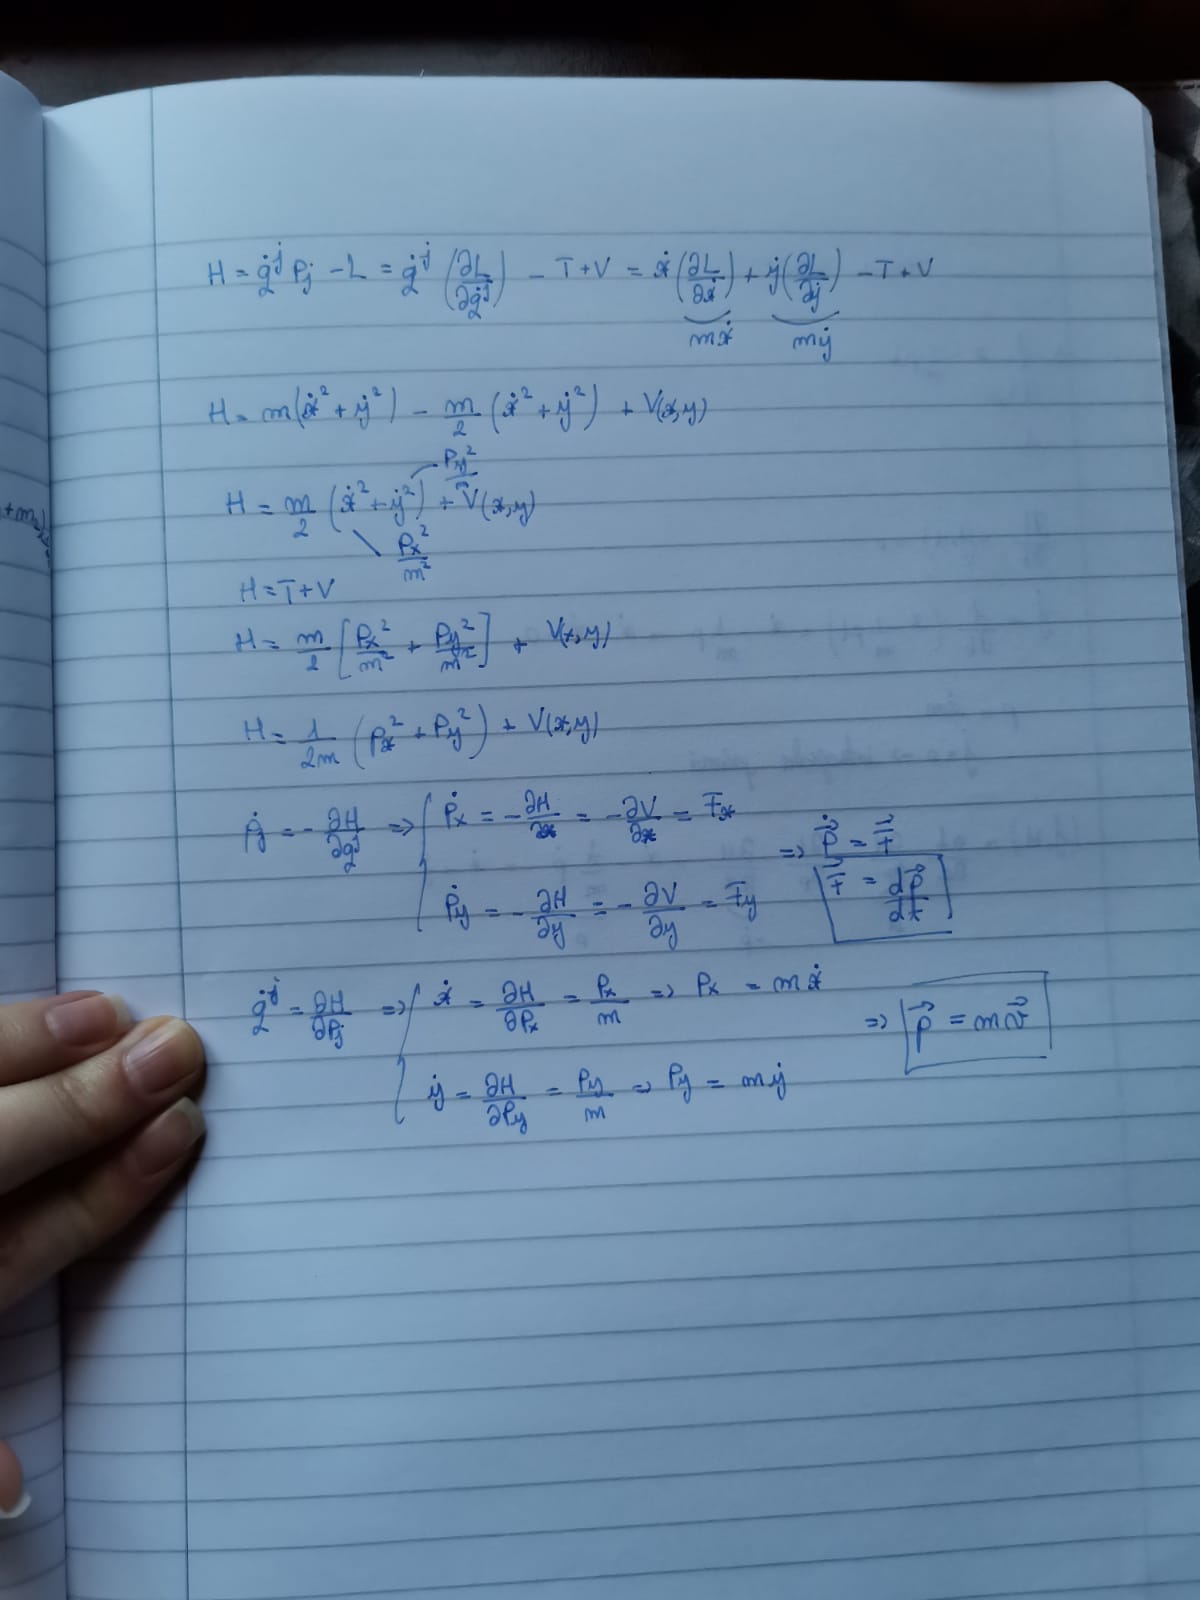 H = q̇ʲ Pj − L = q̇ʲ (∂L/∂q̇ʲ) − T + V = ẋ (∂L/∂ẋ) + ẏ (∂L/∂ẏ) − T + V
mẋ mẏ
H = m(ẋ² + ẏ²) − m/2 (ẋ² + ẏ²) + V(x,y)
H = m/2 (ẋ² + ẏ²) + V(x,y)
Px²/m²
H = T + V
H = m/2 [Px²/m² + Py²/m²] + V(x,y)
H = 1/2m (Px² + Py²) + V(x,y)
Ṗj = −∂H/∂qʲ => { Ṗx = −∂H/∂x = −∂V/∂x = Fx
Ṗy = −∂H/∂y = −∂V/∂y = Fy
=> p⃗̇ = F⃗
F⃗ = dp⃗/dt
q̇ʲ = ∂H/∂Pj => { ẋ = ∂H/∂Px = Px/m => Px = mẋ
ẏ = ∂H/∂Py = Py/m => Py = mẏ
=> p⃗ = mv⃗